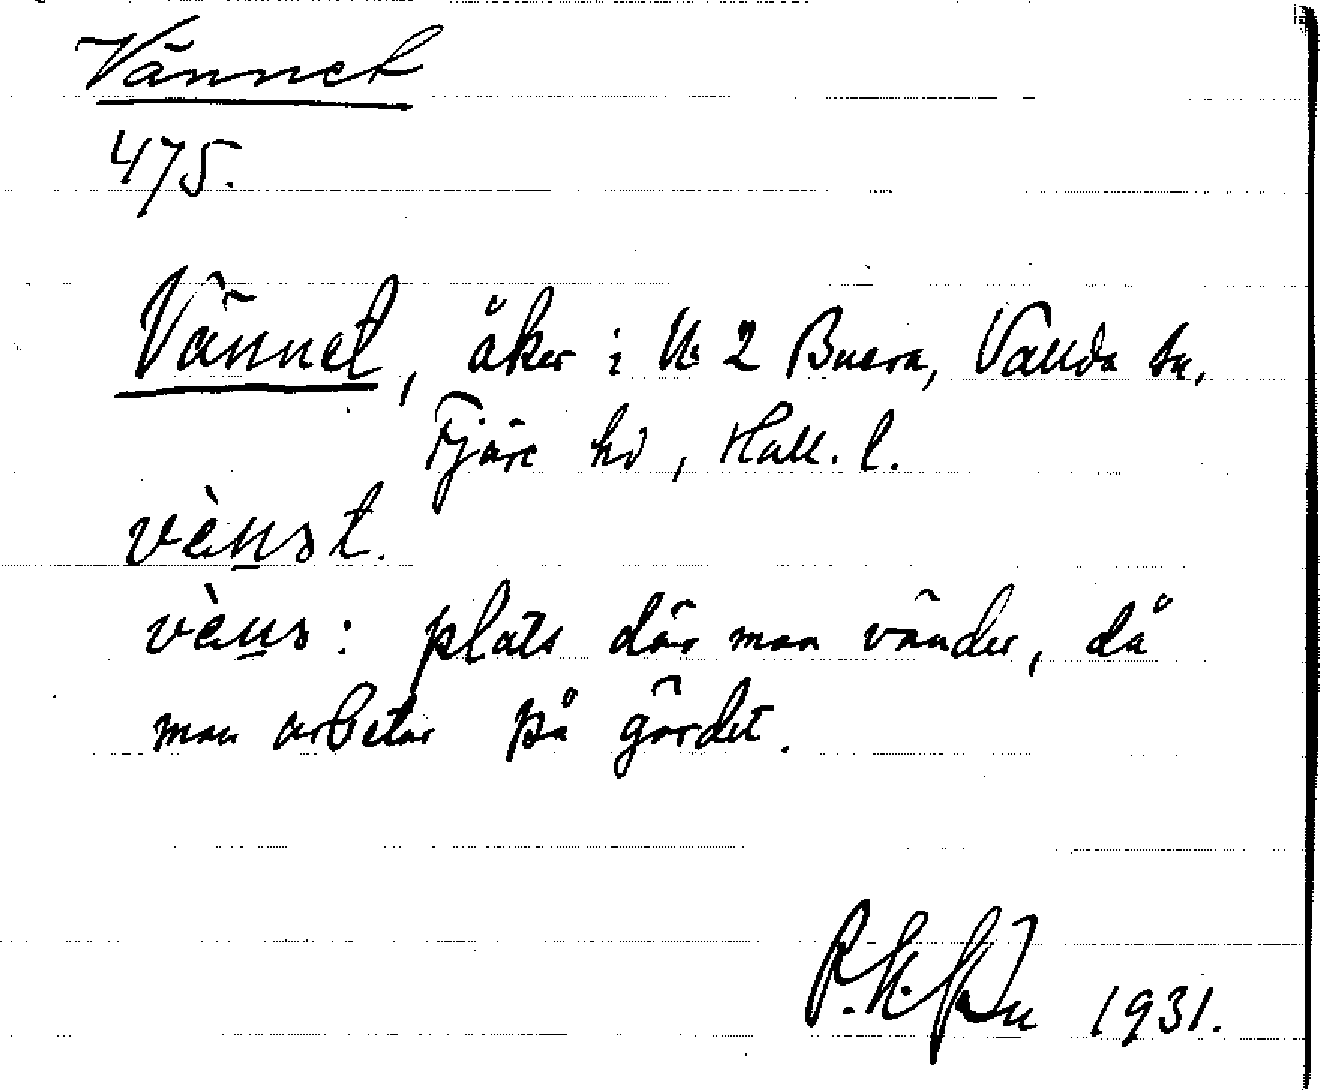 Vännet
475.
Vännet, åker i N:o 2 Buera, Vallda sn,
Fjäre hd, Hall. l.
vènst.
vèns: plats där man vänder, då
man arbetar på gärdet.
1931.